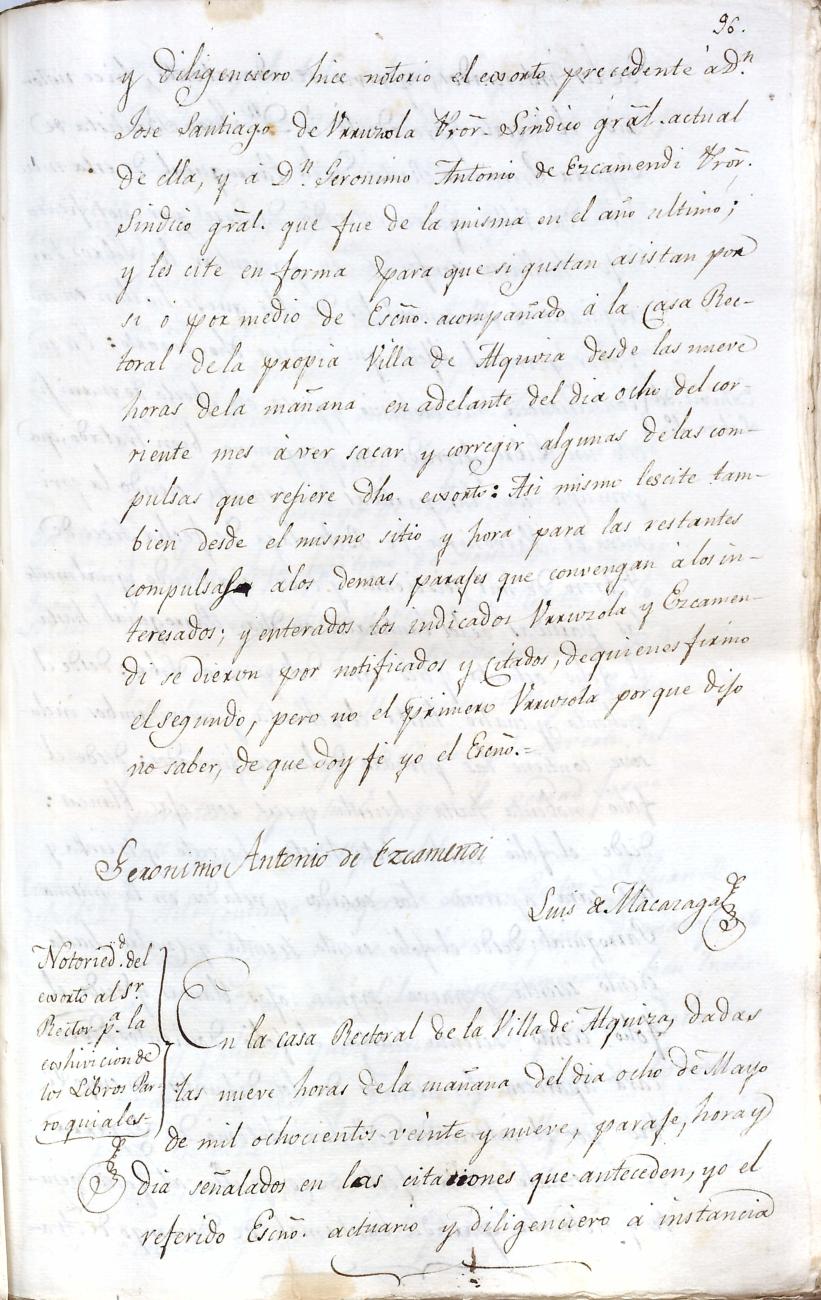 96.
y diligenciero hice notorio el exorto precedente à Dn.
Jose Santiago de Urruzola Pror. Sindico grãl. actual
de ella, y a Dn. Geronimo Antonio de Ezcamendi Pror.
Sindico grãl. que fue de la misma en el año ultimo;
y les cite en forma para que si gustan asistan por
si ó por medio de Escño. acompañado á la Casa Rec-
toral de la propia Villa de Alquiza desde las nueve
horas dela mañana en adelante del dia ocho del cor-
riente mes à ver sacar y corregir algunas de las com-
pulsas que refiere dho. exorto: Asi mismo les cite tam-
bien desde el mismo sitio y hora para las restantes
compulsas àlos demas parajes que convengan à los in-
teresados; y enterados los indicados Urruzola y Ezcamen-
di se dieron por notificados y citados, de quienes firmo
el segundo, pero no el primero Urruzola por que dijo
no saber, de que doy fé yo el Escño.=
Geronimo Antonio de Ezcamendi
Luis de Macazaga
Notoried.d del
exorto al Sr.
Rector pa. la
coshivicion de
los Libros Par-
roquiales
En la casa Rectoral de la Villa de Alquiza, dadas
las nueve horas dela mañana del dia ocho de Mayo
de mil ochocientos veinte y nueve, paraje, hora y
dia señalados en las citaciones que anteceden, yo el
referido Escño. actuario y diligenciero a instancia